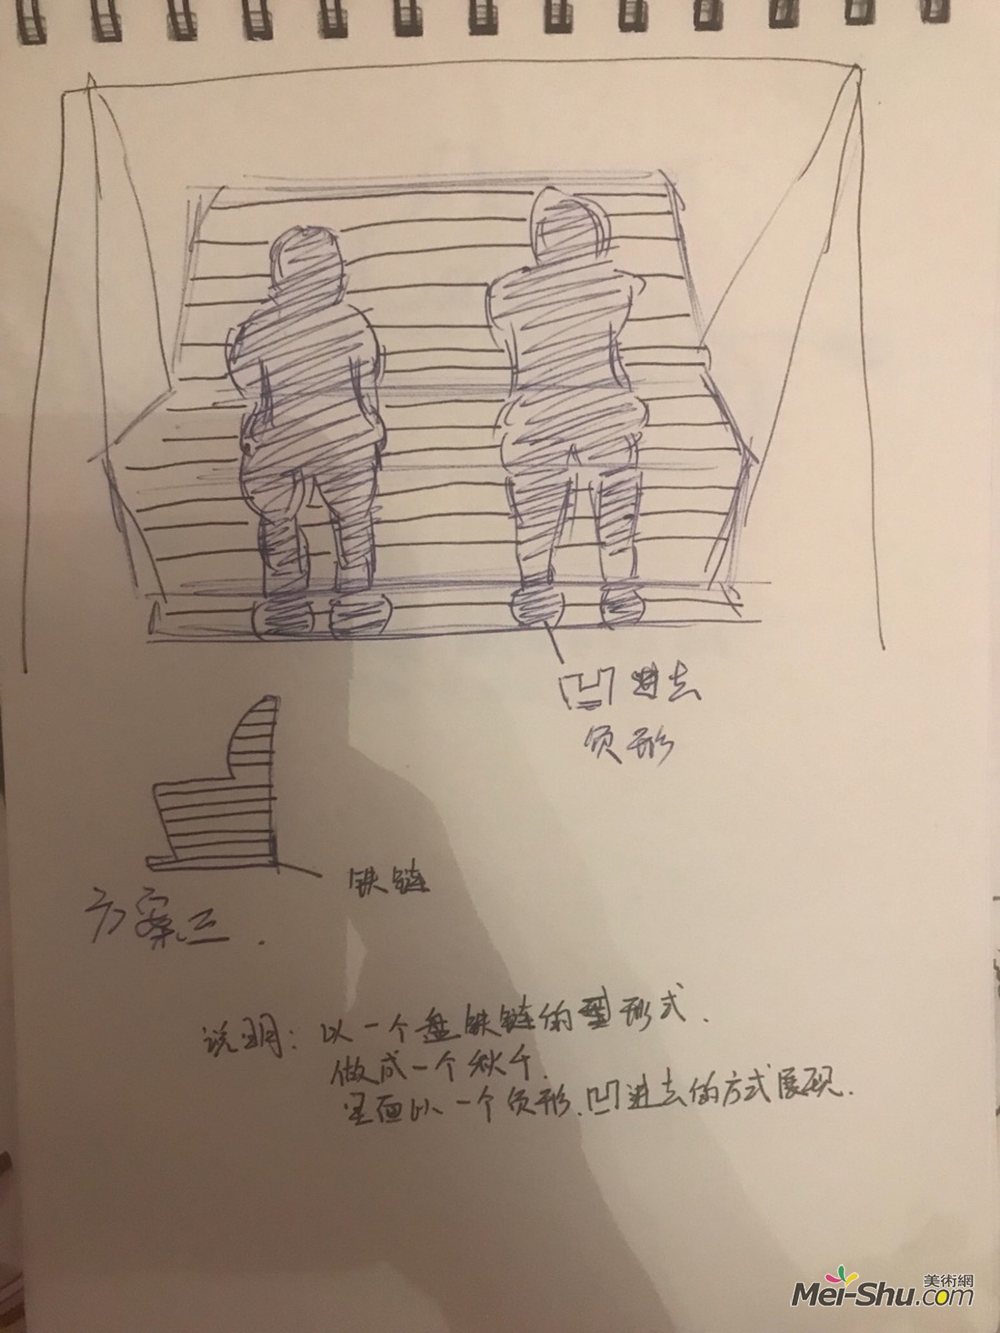 凹进去
负形
铁链
方案三.
说明: 以一个盘铁链的形式.
做成一个秋千.
里面以一个负形.凹进去的方式展现.
美術網
Mei-Shu.com